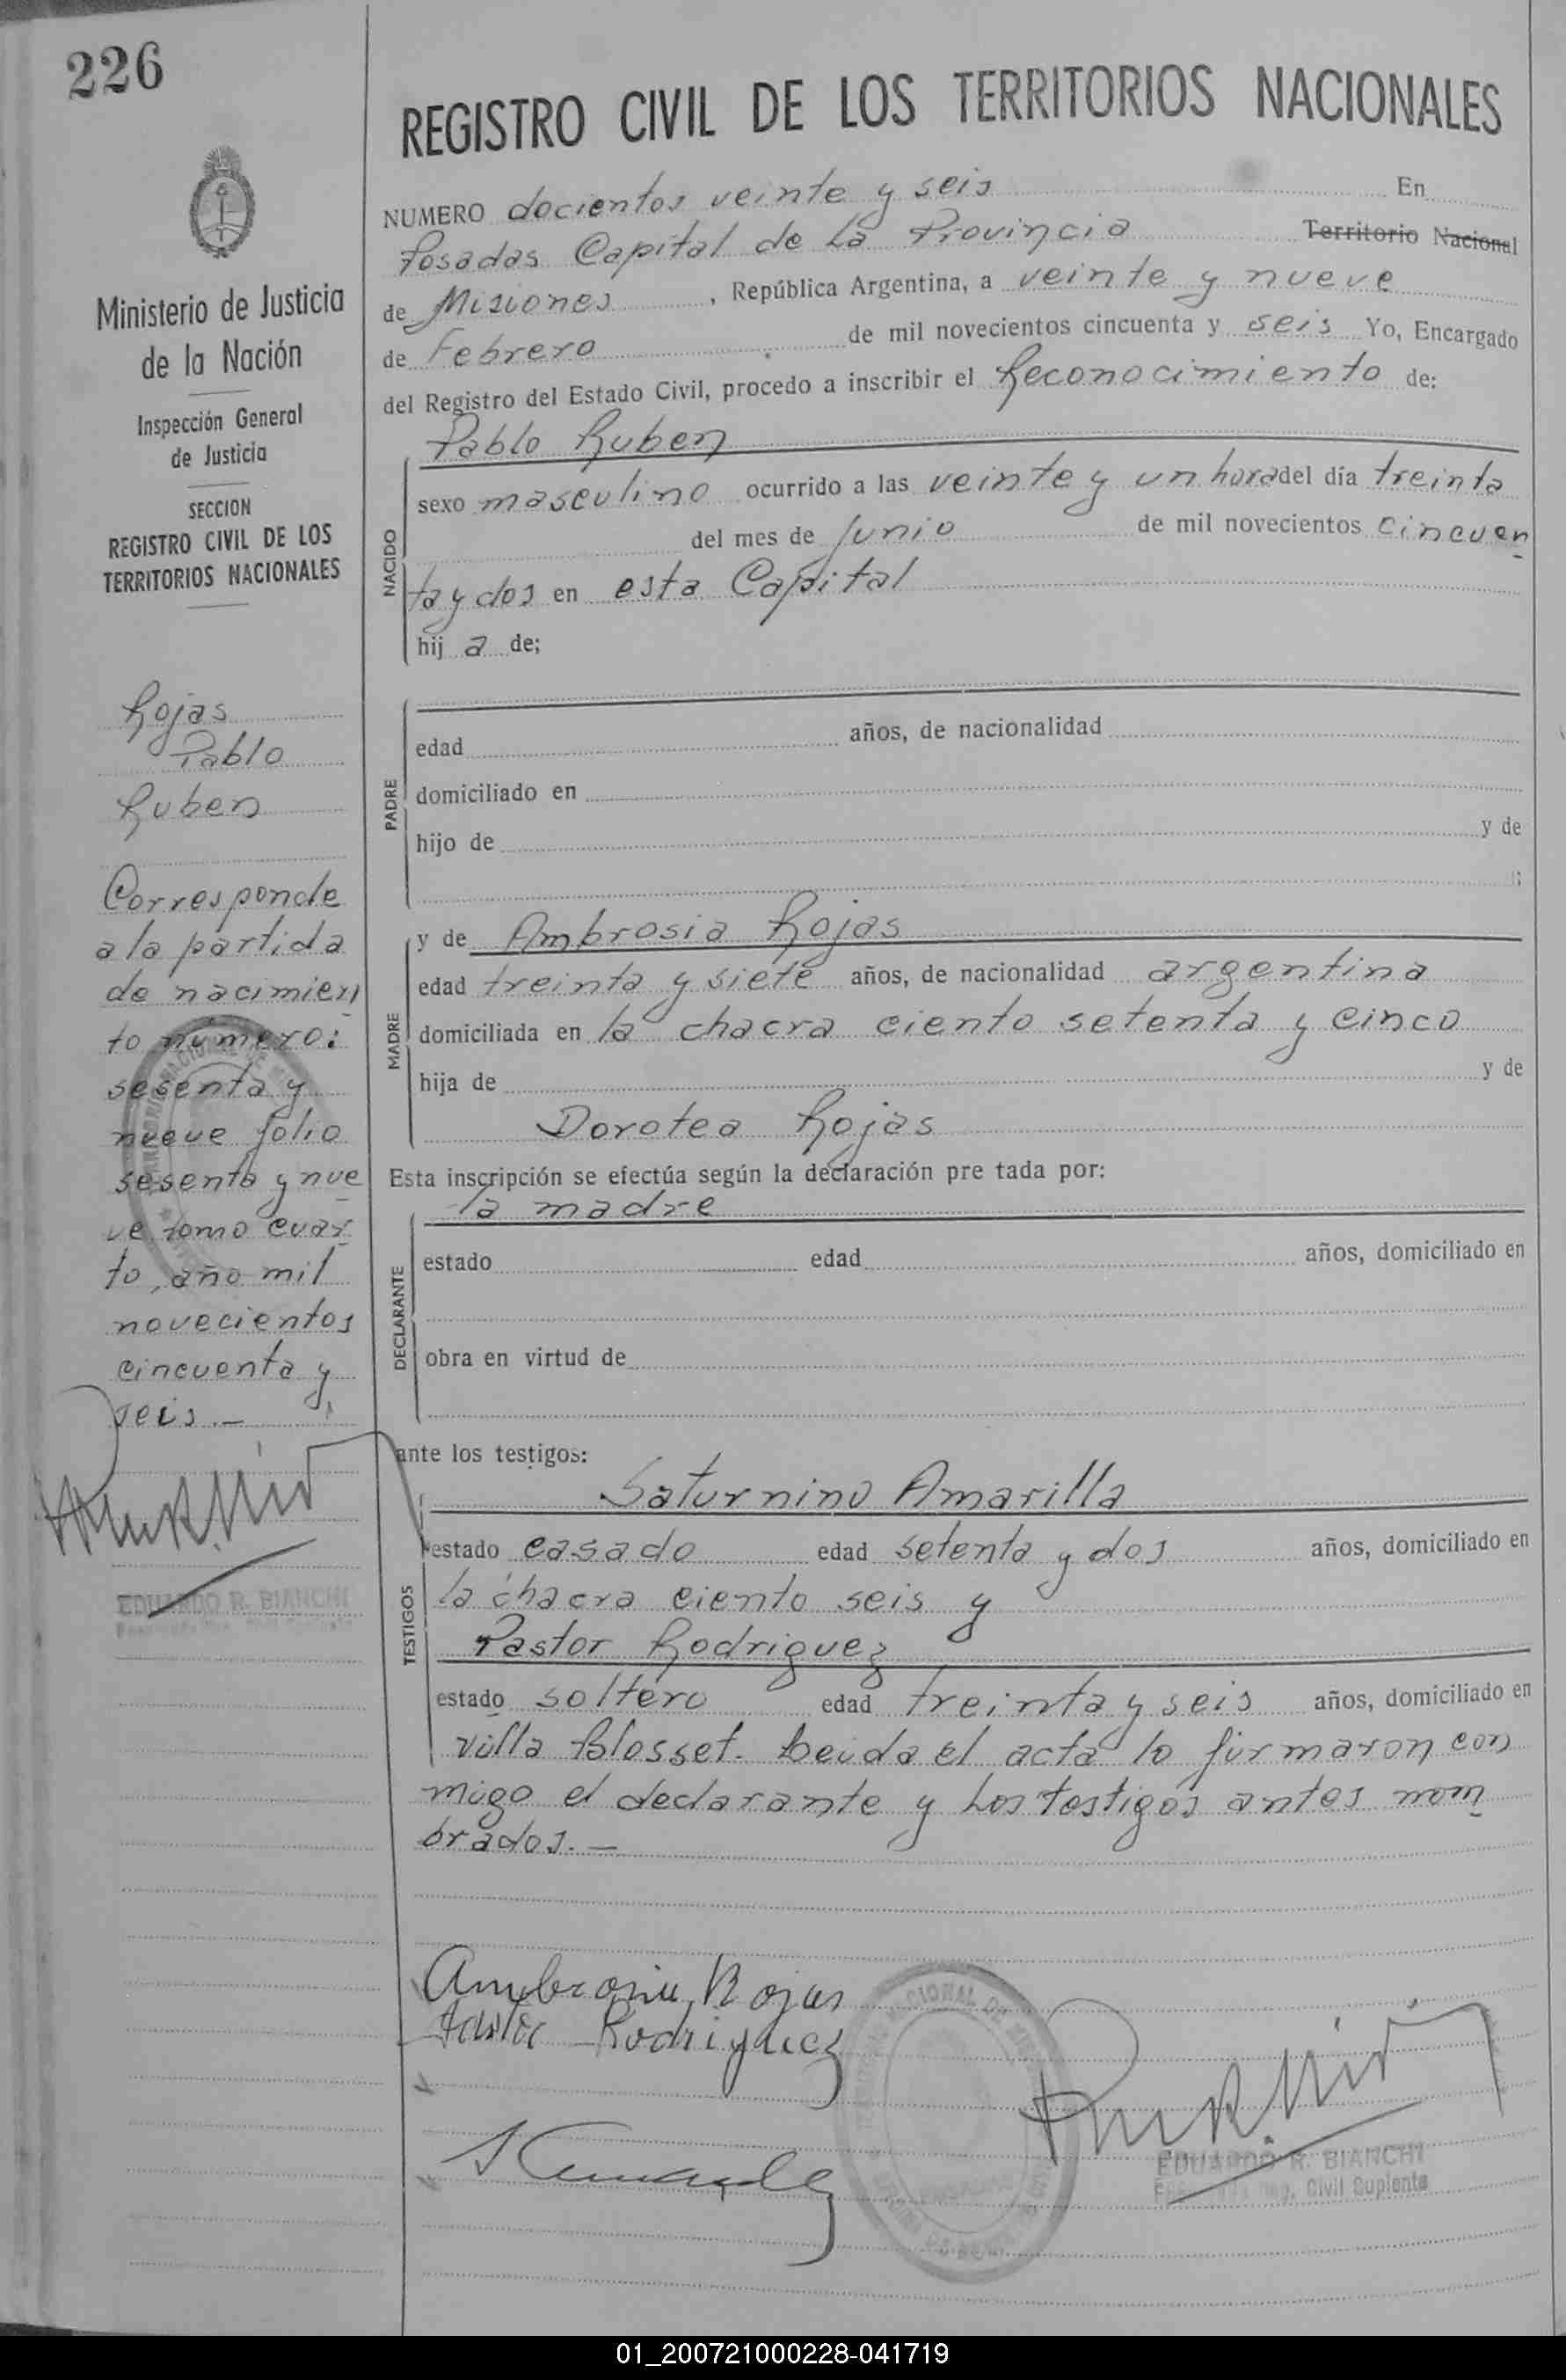 226
REGISTRO CIVIL DE LOS TERRITORIOS NACIONALES
NUMERO docientos veinte y seis En
Posadas Capital de La Provincia Territorio Nacional
de Misiones, República Argentina, a veinte y nueve
de Febrero de mil novecientos cincuenta y seis Yo, Encargado
del Registro del Estado Civil, procedo a inscribir el Reconocimiento de:
Pablo Ruben
NACIDO
sexo masculino ocurrido a las veinte y un hora del día treinta
del mes de Junio de mil novecientos cincuen
ta y dos en esta Capital
hij a de;
PADRE
edad años, de nacionalidad
domiciliado en
hijo de y de
;
MADRE
y de Ambrosia Rojas
edad treinta y siete años, de nacionalidad argentina
domiciliada en la chacra ciento setenta y cinco
hija de y de
Dorotea Rojas
Esta inscripción se efectúa según la declaración pre tada por:
la madre
DECLARANTE
estado edad años, domiciliado en
obra en virtud de
ante los testigos:
TESTIGOS
Saturnino Amarilla
estado casado edad setenta y dos años, domiciliado en
la chacra ciento seis y
Pastor Rodriguez
estado soltero edad treinta y seis años, domiciliado en
villa Blosset. Leida el acta lo firmaron con
migo el declarante y Los testigos antes nom
brados. —
Ambrosia Rojas
Pastor Rodriguez
EDUARDO R. BIANCHI
Reg. Civil Suplente
Ministerio de Justicia
de la Nación
Inspección General
de Justicia
SECCION
REGISTRO CIVIL DE LOS
TERRITORIOS NACIONALES
Rojas
Pablo
Ruben
Corresponde
a la partida
de nacimien
to número:
sesenta y
nueve folio
sesenta y nue
ve tomo cuar
to, año mil
novecientos
cincuenta y
seis. —
EDUARDO R. BIANCHI
01_200721000228-041719